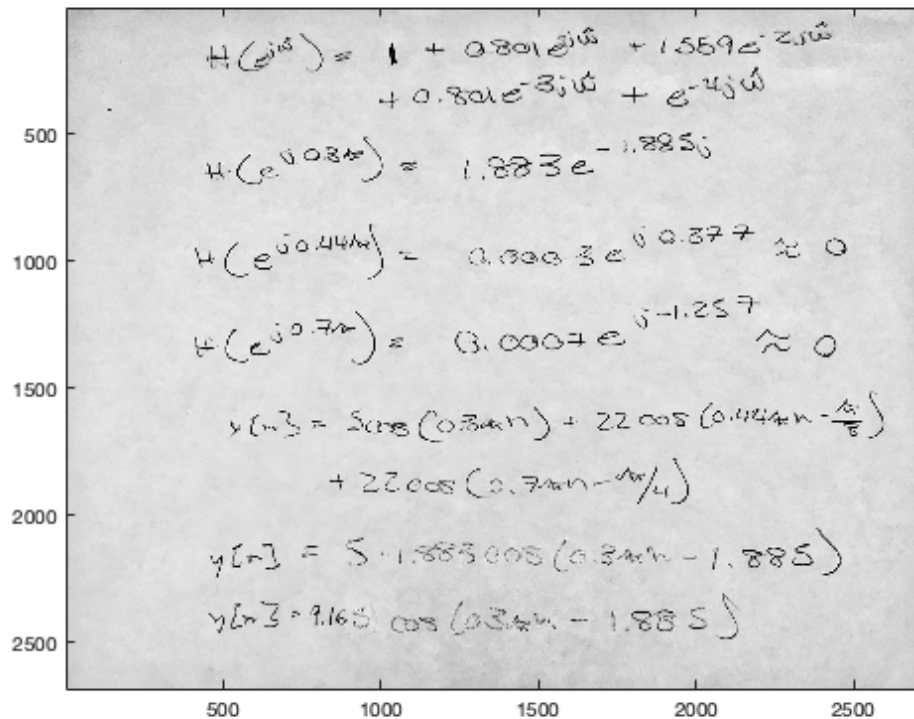 H(e^jŵ) = 1 + 0.801e^jŵ + 1.559e^-2jŵ
+ 0.801e^-3jŵ + e^-4jŵ
500
H(e^j0.3π) = 1.883e^-1.885j
H(e^j0.44π) = 0.0003e^j0.377 ≈ 0
1000
H(e^j0.7π) = 0.0007e^j-1.257 ≈ 0
1500
x[n] = 5cos(0.3πn) + 22cos(0.44πn - π/8)
+ 22cos(0.7πn - π/4)
2000
y[n] = 5·1.883cos(0.3πn - 1.885)
y[n] = 9.165 cos(0.3πn - 1.885)
2500
500 1000 1500 2000 2500